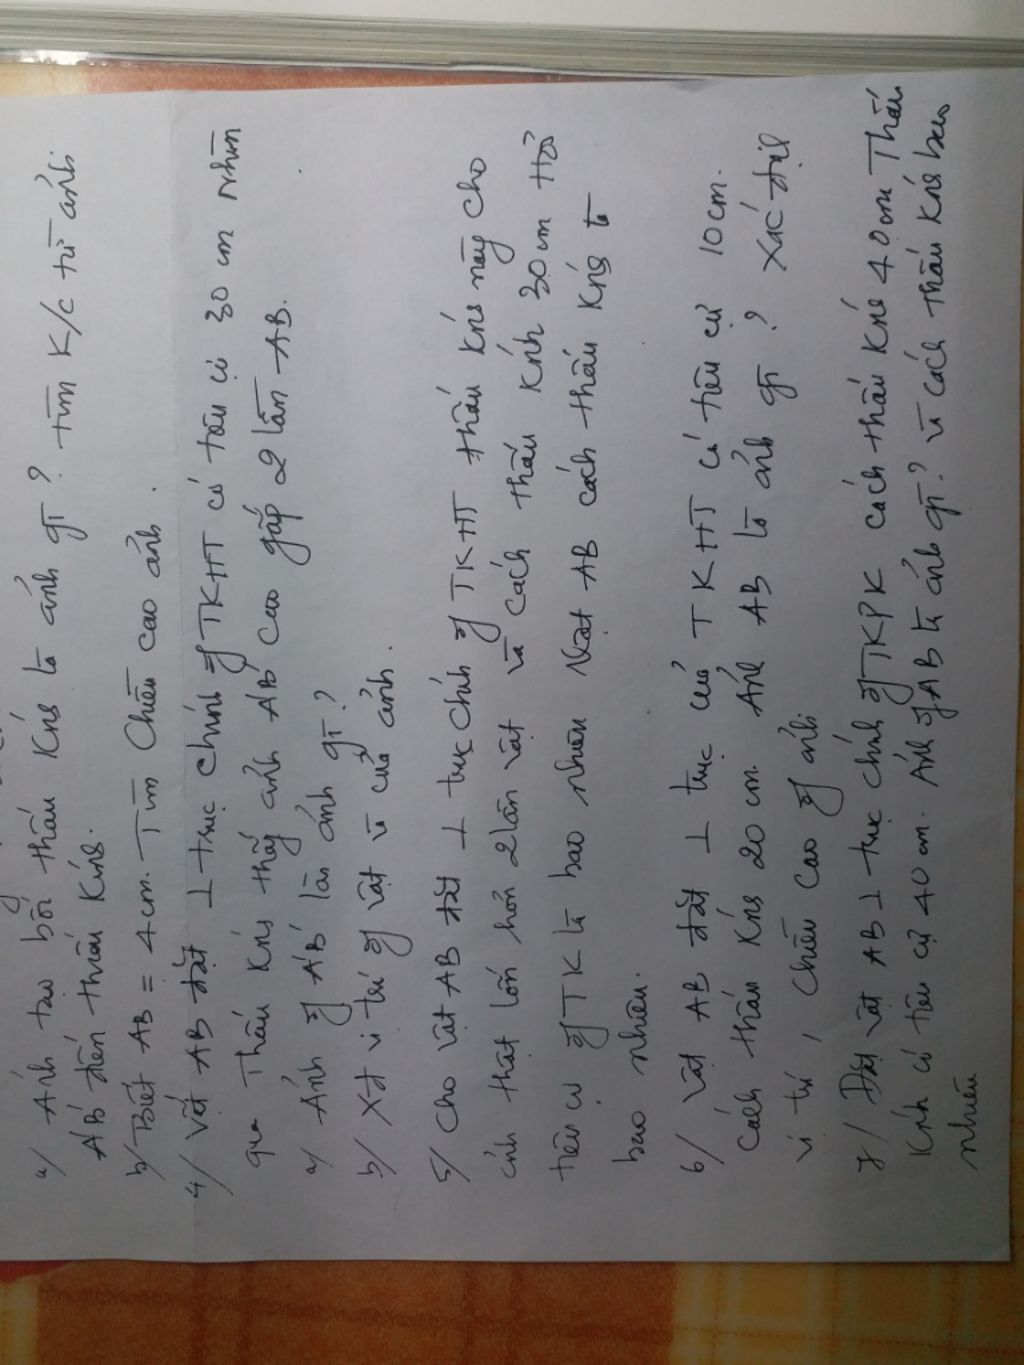 a/ Ảnh tạo bởi thấu kính là ảnh gì? tìm K/c từ ảnh
A'B' đến thấu kính.
b/ Biết AB = 4cm. Tìm chiều cao ảnh.
4/ Vật AB đặt ⊥ trục chính of TKHT có tiêu cự 30 cm nhìn
qua thấu kính thấy ảnh A'B' cao gấp 2 lần AB.
a/ Ảnh of A'B' là ảnh gì?
b/ Xđ vị trí of vật và của ảnh.
5/ Cho vật AB đặt ⊥ trục chính of TKHT thấu kính này cho
ảnh thật lớn hơn 2 lần vật và cách thấu kính 30cm Hỏi
tiêu cự of TK là bao nhiêu Vật AB cách thấu kính là
bao nhiêu.
6/ Vật AB đặt ⊥ trục của TKHT có tiêu cự 10cm.
Cách thấu kính 20 cm. Ảnh AB là ảnh gì? Xác định
vị trí, chiều cao of ảnh
7/ Đặt vật AB ⊥ trục chính of TKPK cách thấu kính 40cm Thấu
Kính có tiêu cự 40cm. Ảnh of AB là ảnh gì? và cách thấu kính bao
nhiêu